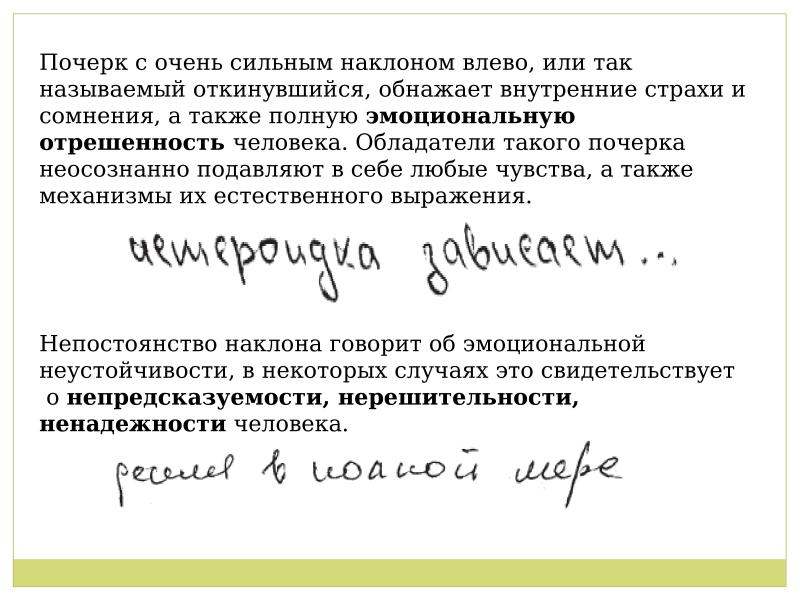 Почерк с очень сильным наклоном влево, или так
называемый откинувшийся, обнажает внутренние страхи и
сомнения, а также полную эмоциональную
отрешенность человека. Обладатели такого почерка
неосознанно подавляют в себе любые чувства, а также
механизмы их естественного выражения.
зависает...
Непостоянство наклона говорит об эмоциональной
неустойчивости, в некоторых случаях это свидетельствует
о непредсказуемости, нерешительности,
ненадежности человека.
в полной мере